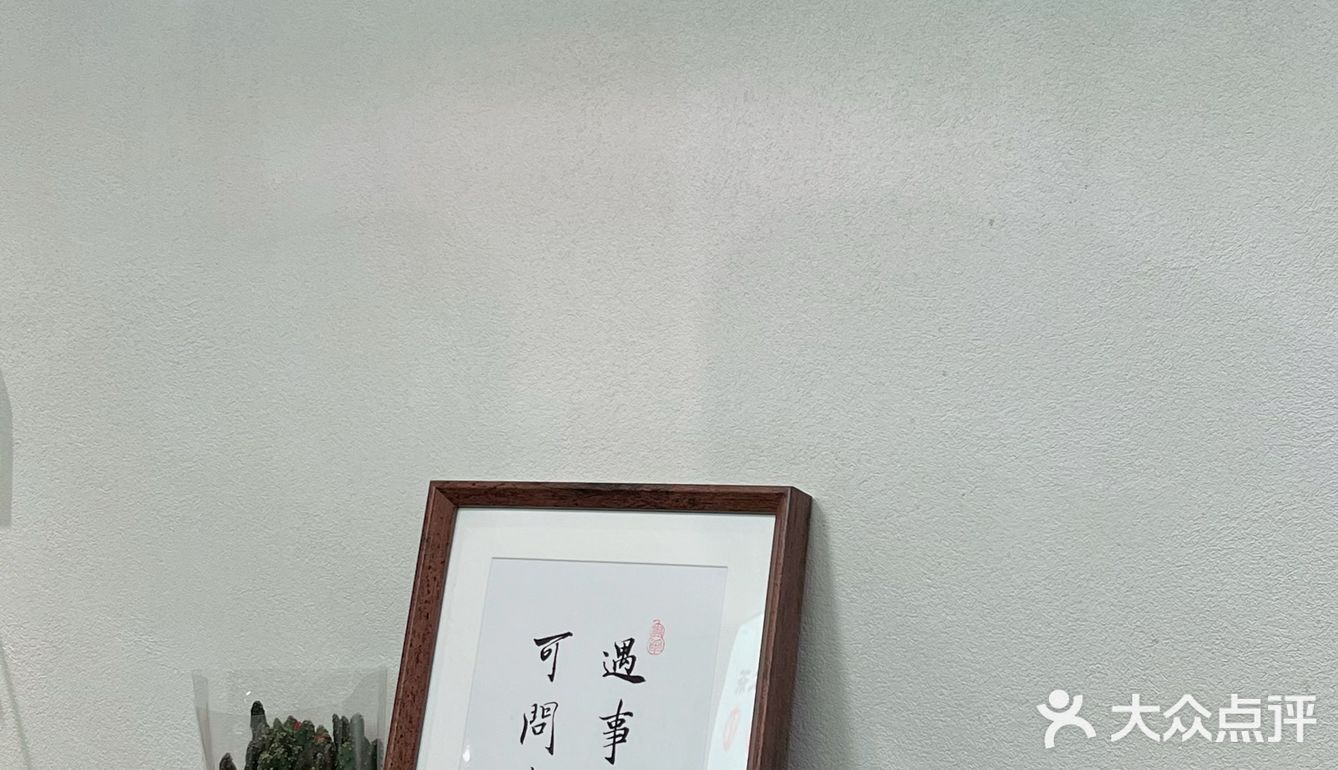 遇事
可問
大众点评